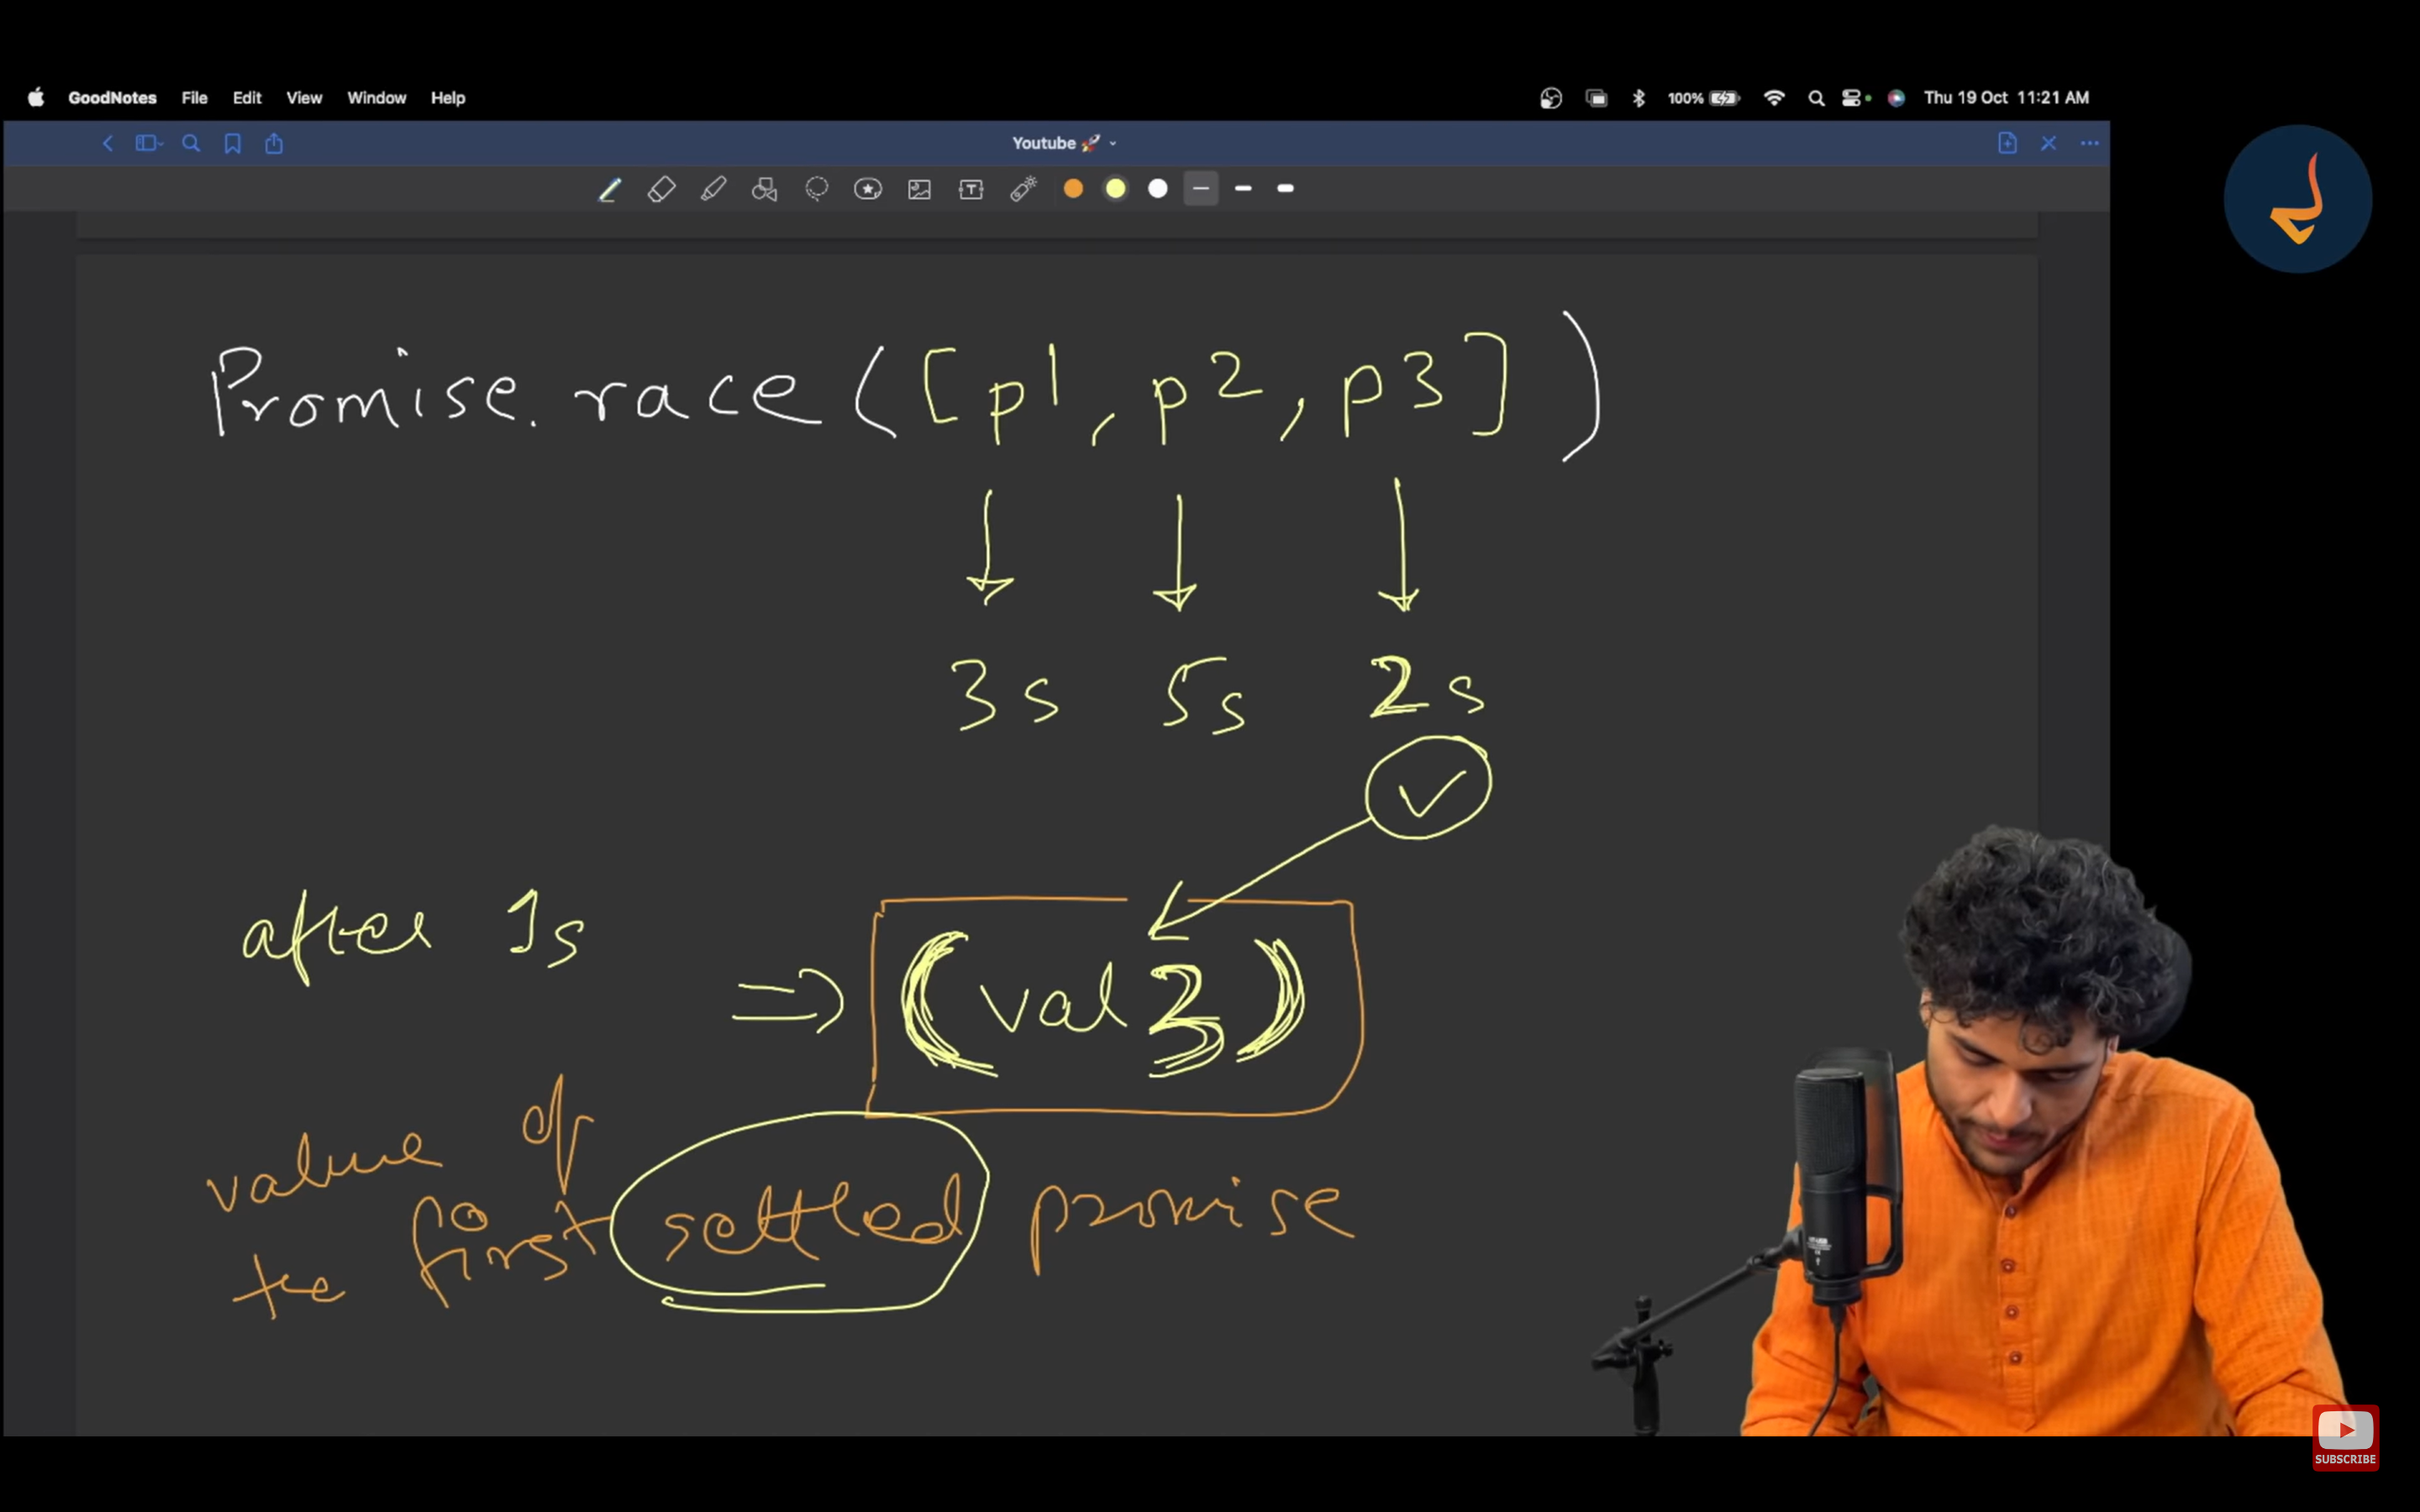 GoodNotes File Edit View Window Help 100% Thu 19 Oct 11:21 AM
Youtube 🚀
Promise.race([p1, p2, p3])
3s 5s 2s
after 1s
=> (val3)
value of
the first settled promise
SUBSCRIBE